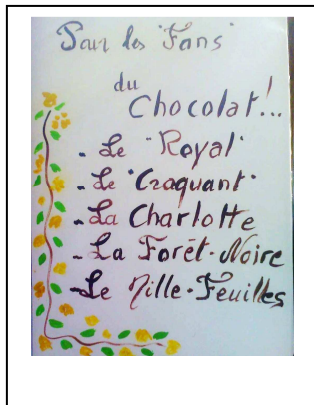 Pour les "Fans"
du
Chocolat!..
- Le "Royal"
- Le "Craquant"
- La Charlotte
- La Forêt-Noire
- Le Mille-Feuilles